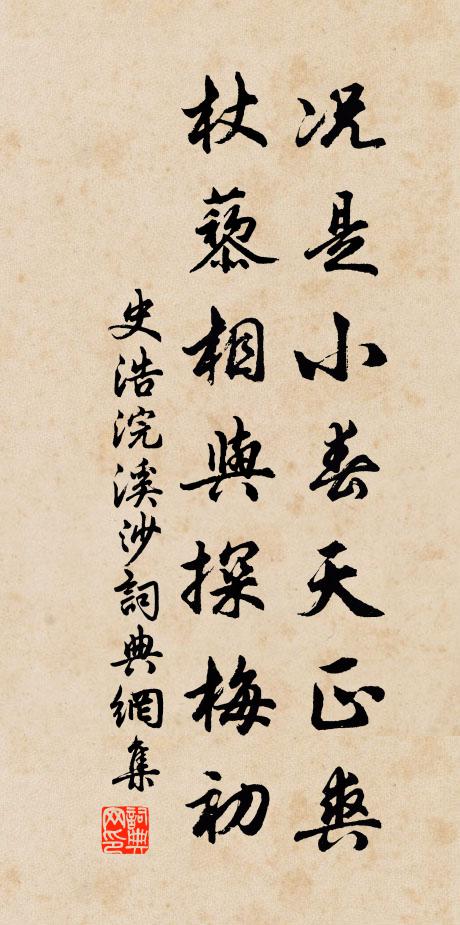 况是小春天正爽
杖藜相與探梅初
史浩浣溪沙詞典網集
詞典网印